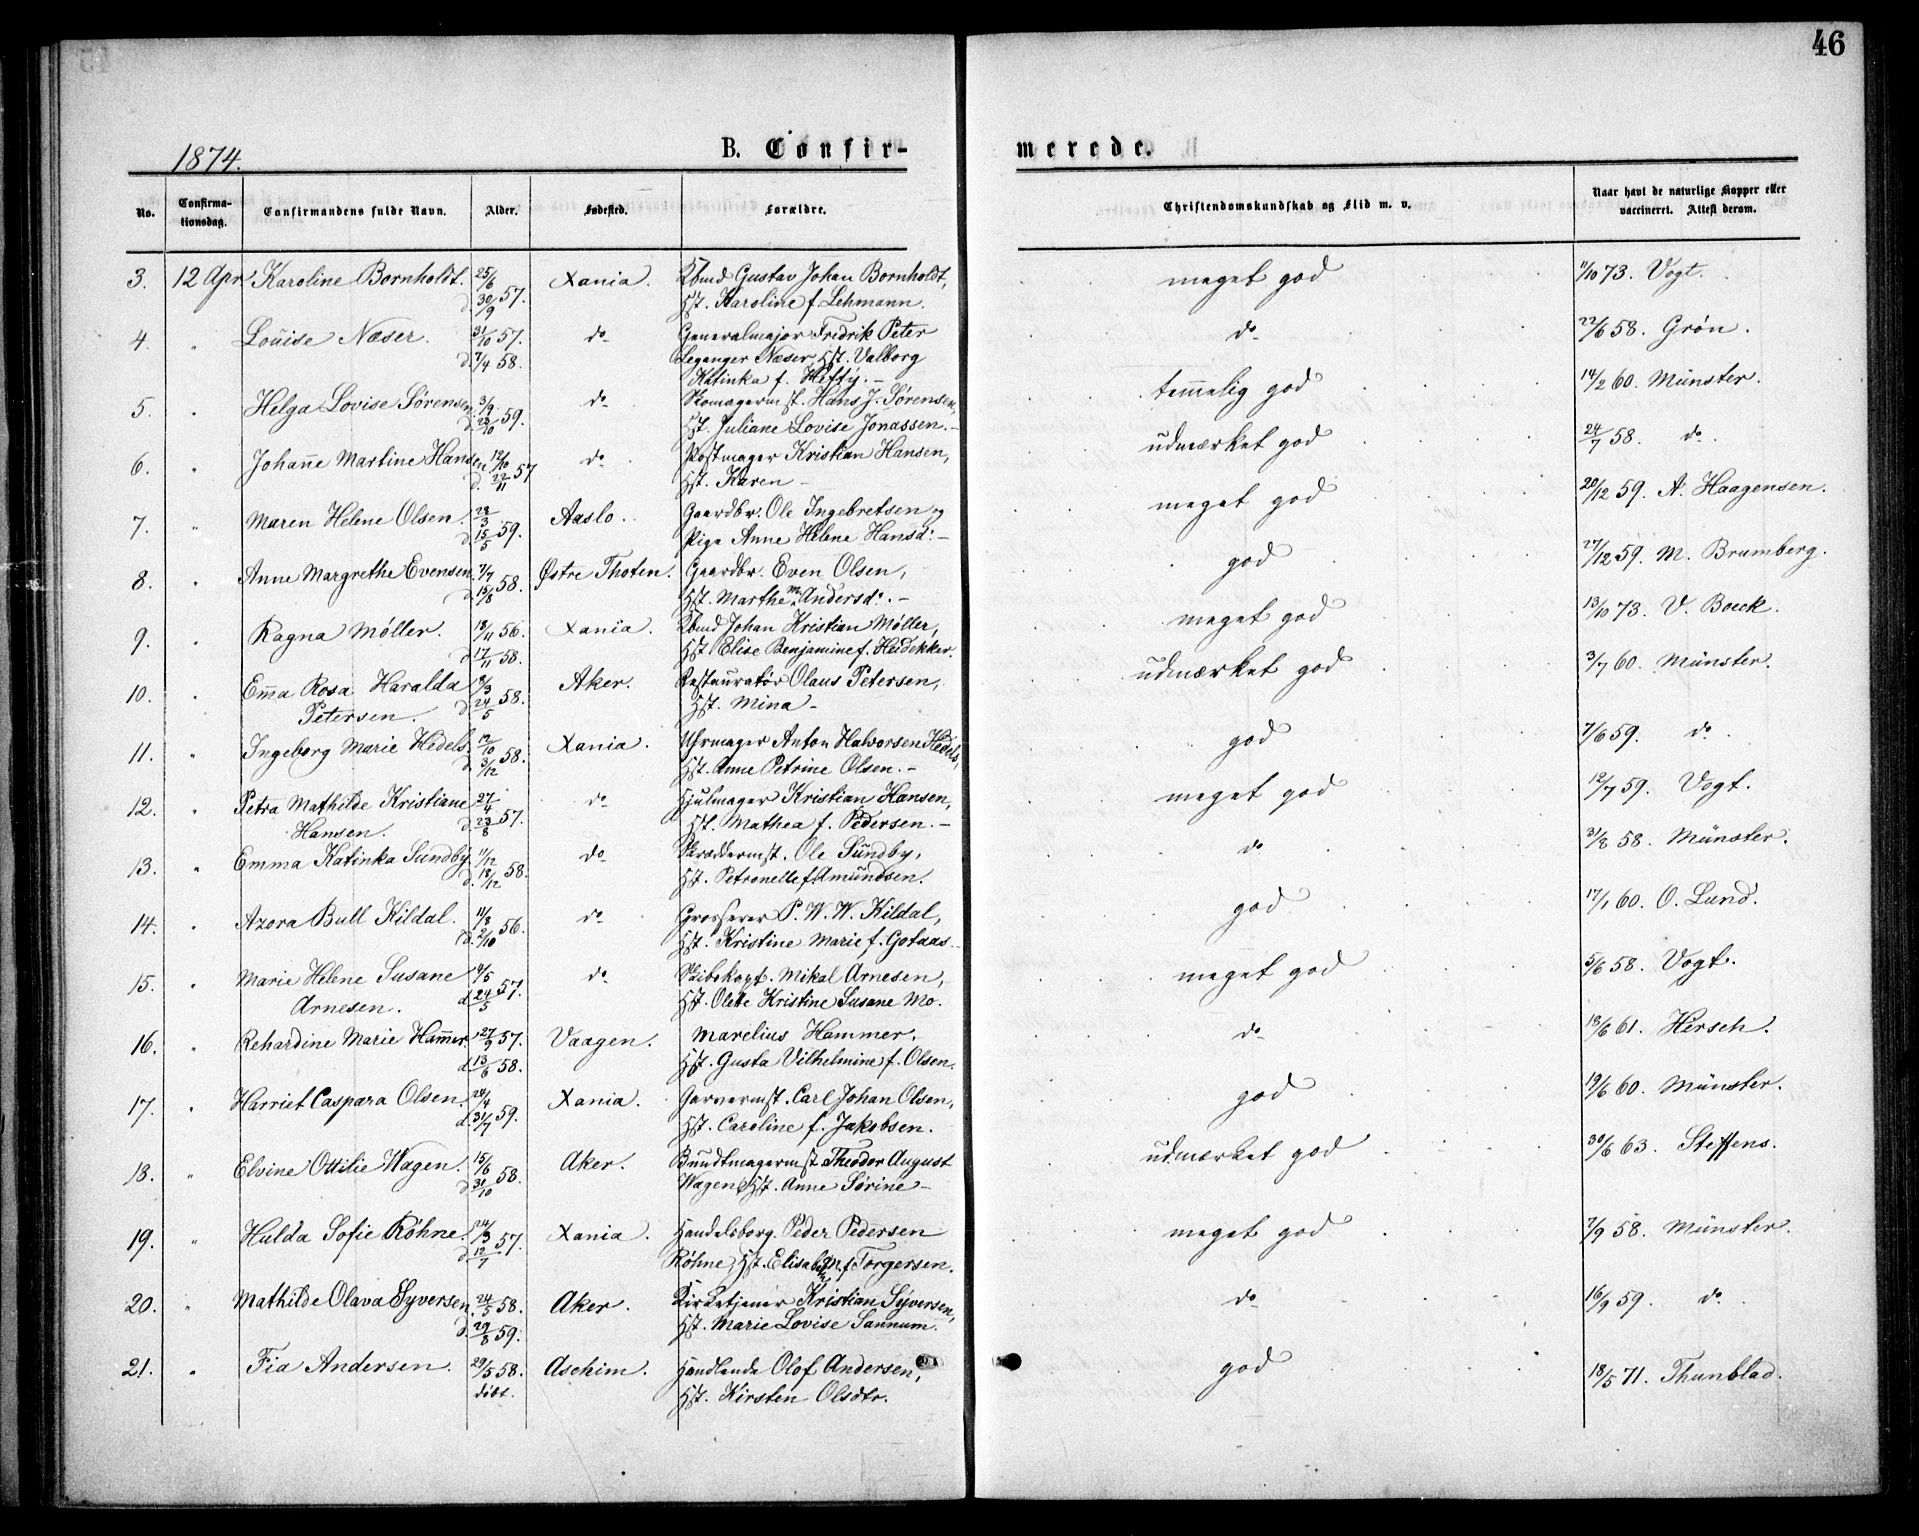 46
1874.
B. Confir-
merede.
No.
Confirma-
tionsdag.
Confirmandens fulde Navn.
Alder.
Fødested.
Forældre.
Christendomskundskab og Flid m. v.
Naar havt de naturlige Kopper eller
vaccineret. Attest derom.
3. 12 Apr Karoline Bornholdt. 25/6 Xania. Kbmd Gustav Johan Bornholdt, meget god 11/10 73. Vogt.
d. 30/9 57. Hst. Karoline f. Lehmann.
4. " Louise Næser. 31/10 57. do Generalmajor Fredrik Peter do 22/6 58. Grøn.
d. 7/4 58. Leganger Næser Hst. Valborg
Katinka f. Hefty. -
5. " Helga Lovise Sørensen 3/9 do Skomagermst. Hans J. Sørensen, temmelig god 14/2 60. Münster.
d. 23/10 59. Hst. Juliane Lovise Jonassen. -
6. " Johanne Martine Hansen 12/10 do Postmager Kristian Hansen, udmærket god 24/7 58. do.
d. 22/11 57 Hst. Karen -
7. " Maren Helene Olsen. 28/3 Aaslo. Gaardbr. Ole Ingebretsen og meget god 20/12 59. A. Haagensen.
d. 15/5 59. Pige Anne Helene Hansd: -
8. " Anne Margrethe Evensen 7/7 Østre Thoten. Gaardbr. Even Olsen, god 27/12 59. M. Brumberg.
d. 15/8 58. Hst. Marthe M. Andersd: -
9. " Ragna Møller. 18/11 56. Xania. Kbmd Johan Kristian Møller, meget god 13/10 73. V. Boeck.
d. 17/11 58. Hst Elise Benjamine f. Heidekker.
10. " Emma Rosa Haralda 8/3 Aker. Restauratør Olaus Petersen, udmærket god 3/7 60. Münster.
Petersen. d. 24/5 58. Hst. Mina -
11. " Ingeborg Marie Hedels. 12/10 Xania. Uhrmager Anton Halvorsen Hedels, god 7/6 59. do.
d. 3/12 58. Hst. Anne Petrine Olsen. -
12. " Petra Mathilde Kristiane 27/4 do Hjulmager Kristian Hansen, meget god 12/7 59. Vogt.
Hansen. d. 23/8 57. Hst. Mathea f. Pedersen. -
13. " Emma Katinka Sundby. 11/12 do Skræddermst. Ole Sundby, do 31/8 58. Münster.
d. 18/12 58. Hst. Petronelle f. Amundsen.
14. " Azora Bull Kildal. 11/8 do Grosserer P. W. W. Kildal, god 17/1 60. O. Lund.
d. 2/10 56. Hst. Kristine Marie f. Gotaas.
15. " Marie Helene Susane 4/5 do Skibskapt. Mikal Arnesen, meget god 5/6 58. Vogt.
Arnesen. d. 24/5 57. Hst. Olette Kristine Susane Mo.
16. " Rehardine Marie Hammer. 27/9 57. Vaagen. Marelius Hammer, do 18/6 61. Hersch.
d. 13/6 58. Hst. Gusta Vilhelmine f. Olsen.
17. " Harriet Caspara Olsen. 24/4 Xania. Garvermst. Carl Johan Olsen, god 19/6 60. Münster.
d. 31/7 59. Hst. Caroline f. Jakobsen.
18. " Elvine Ottilie Wagen. 15/6 Aker. Bundtmagermst Theodor August udmærket god 30/6 63. Steffens.
d. 31/10 58. Wagen, Hst. Anne Sørine -
19. " Hulda Sofie Røhne. 24/3 Xania. Handelsborg. Peder Pedersen meget god 7/9 58. Münster.
d. 12/7 57. Røhne, Hst. Elisabeth M. f. Torgersen.
20. " Mathilde Olava Syversen 24/5 58. Aker. Kirketjener Kristian Syversen, do 16/9 59. do.
d. 29/8 59. Hst. Marie Lovise Sannum.
21. " Fia Andersen. 29/5 58. Aschim. Handlende Olof Andersen, god 18/5 71. Thunblad.
døbt. Hst. Kirsten Olsdtr.